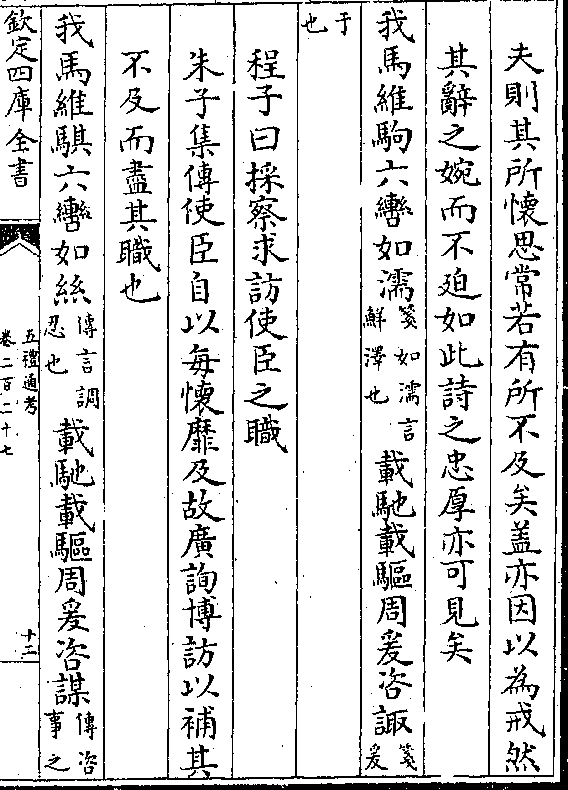 夫則其所懷思常若有所不及矣蓋亦因以為戒然
其辭之婉而不迫如此詩之忠厚亦可見矣
我馬維駒六轡如濡箋如濡言鮮澤也載馳載驅周爰咨諏箋爰
于也
程子曰採察求訪使臣之職
朱子集傳使臣自以每懷靡及故廣詢博訪以補其
不及而盡其職也
我馬維騏六轡如絲傳言調忍也載馳載驅周爰咨謀傳咨事之
欽定四庫全書
五禮通考
卷二百二十七
十二